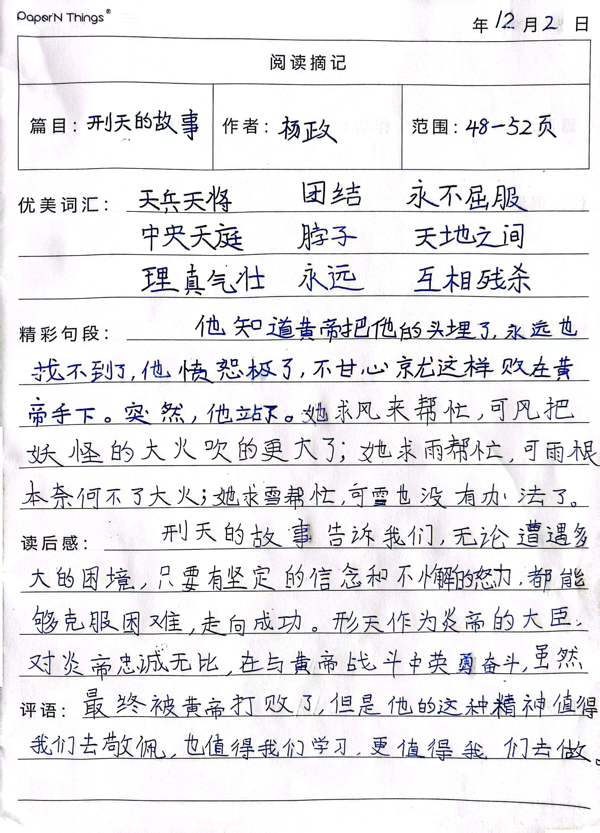 PaperN Things®
年 12 月 2 日
阅读摘记
篇目：刑天的故事 作者：杨政 范围：48-52页
优美词汇： 天兵天将 团结 永不屈服
中央天庭 脖子 天地之间
理真气壮 永远 互相残杀
精彩句段： 他知道黄帝把他的头埋了，永远也
找不到了，他愤怨极了，不甘心就这样败在黄
帝手下。突然，他站下。她求风来帮忙，可风把
妖怪的大火吹的更大了；她求雨帮忙，可雨根
本奈何不了大火；她求雪帮忙，可雪也没有办法了。
读后感： 刑天的故事告诉我们，无论遭遇多
大的困境，只要有坚定的信念和不懈的努力，都能
够克服困难，走向成功。形天作为炎帝的大臣，
对炎帝忠诚无比，在与黄帝战斗中英勇奋斗，虽然
评语：最终被黄帝打败了，但是他的这种精神值得
我们去敬佩，也值得我们学习，更值得我们去做。